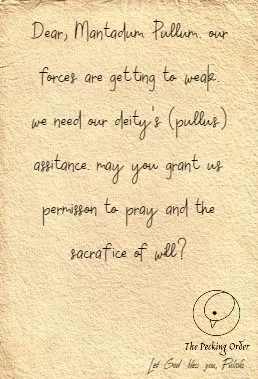 Dear, Mantadum Pullum. our
forces are getting to weak.
we need our deity's (pullus)
assitance. may you grant us
permisson to pray and the
sacrafice of will?
The Pecking Order
Let God bless you, Pullus